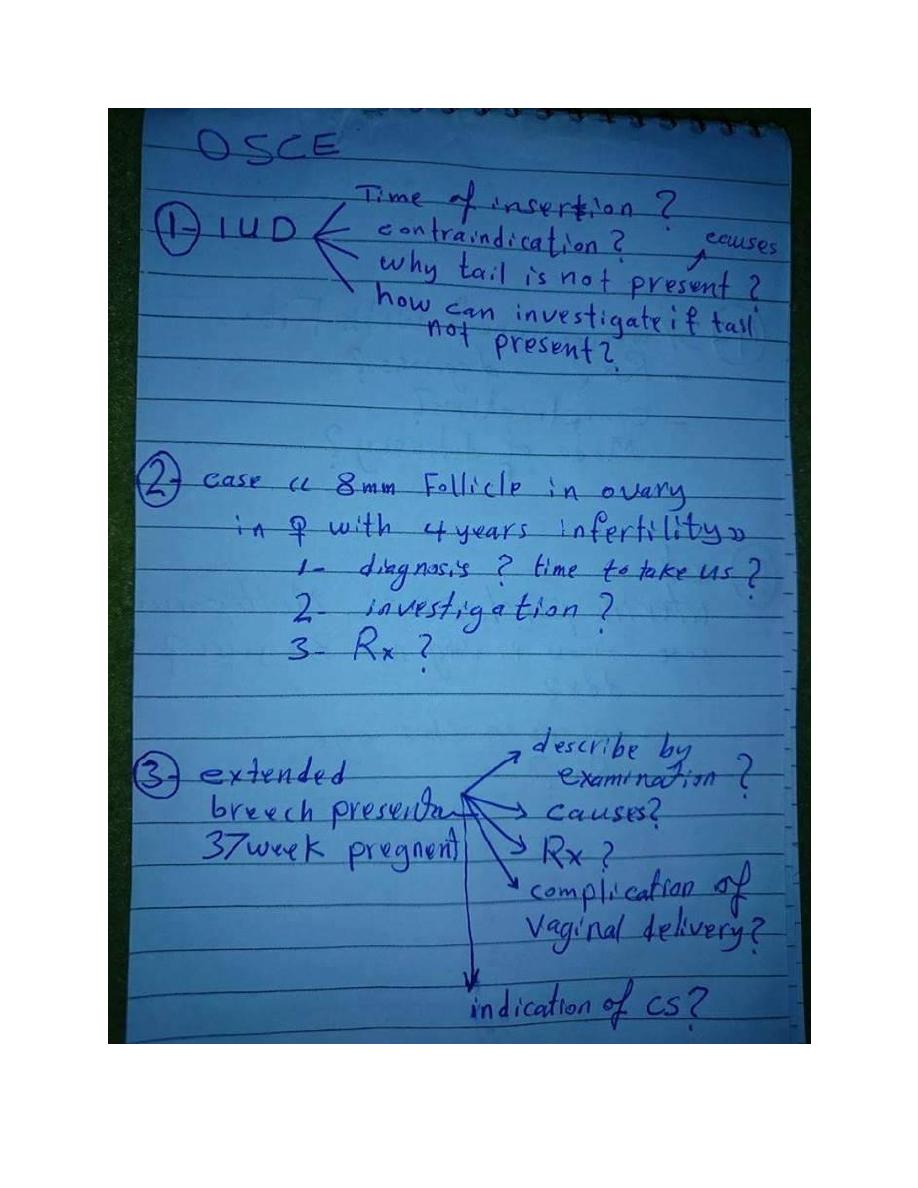 OSCE
1- IUD
Time of insertion ?
contraindication ?
causes
why tail is not present ?
how can investigate if tail
not present ?
2- case « 8mm Follicle in ovary
in ♀ with 4 years infertility »
1- diagnosis ? time to take us ?
2- investigation ?
3- Rx ?
3- extended
breech presenta
37 week pregnent
describe by
examination ?
causes?
Rx ?
complication of
vaginal delivery?
indication of CS?